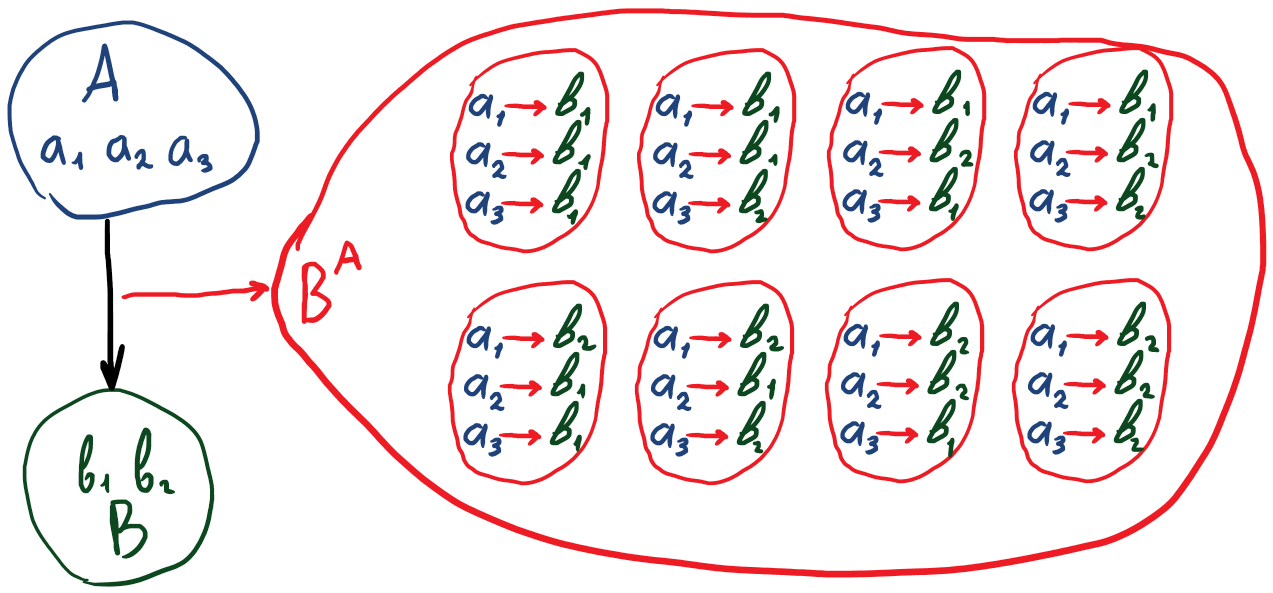 A
a₁ a₂ a₃
b₁ b₂
B
Bᴬ
a₁→b₁
a₂→b₁
a₃→b₁
a₁→b₁
a₂→b₁
a₃→b₂
a₁→b₁
a₂→b₂
a₃→b₁
a₁→b₁
a₂→b₂
a₃→b₂
a₁→b₂
a₂→b₁
a₃→b₁
a₁→b₂
a₂→b₁
a₃→b₂
a₁→b₂
a₂→b₂
a₃→b₁
a₁→b₂
a₂→b₂
a₃→b₂